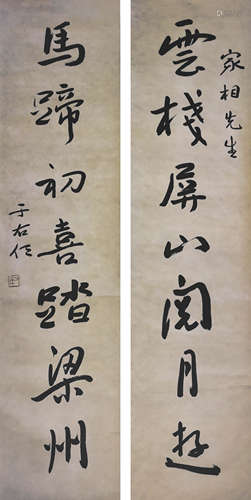 家相先生
雲棧屏山閱月遊
馬蹄初喜踏梁州
于右任